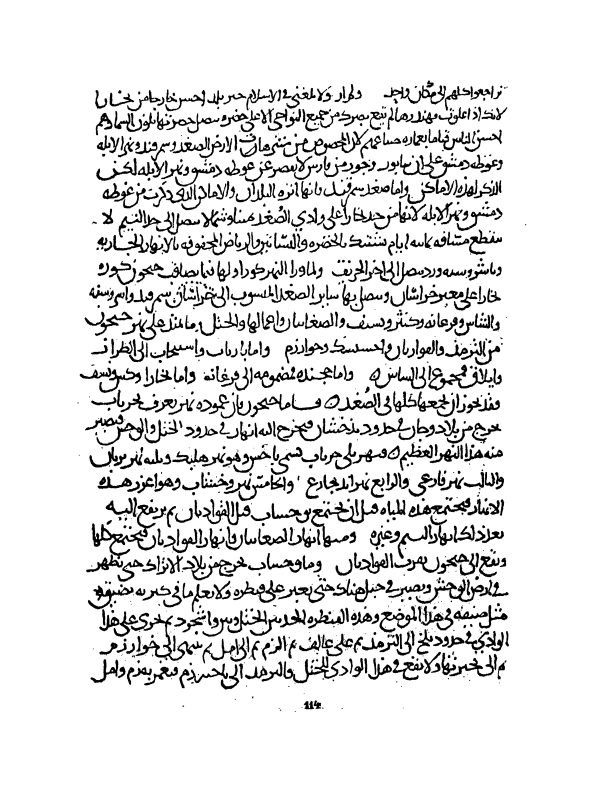 تراجعوا كلهم الى مكان واحد ولم ار ولا بلغنى فى الاسلام حير بلد احسن خارجا من بخارا
لانك اذا علوت قهندزها لم يقع بصرك من جميع النواحى الا على خضره يتصل خضرتها بلون السما
احسن الناس قياما بعماره ضياعهم لان المخصوص من منتزهات الارض الصغد وسمرقند ونهر الابله
وغوطه دمشق على ان سابور وجور من فارس لا يقصر عن غوطه دمشق ونهر الابله لكن
الذكر لهذه الاماكن واما صغد سمرقند فانها انزه البلدان والاماكن التى ذكرت من غوطه
دمشق ونهر الابله لانها من حد بخارا على وادى الصغد يمينا وشمالا يتصل الى حد البتم لا
ينقطع مسافه ثمانيه ايام مشتبك بالخضره والبساتين والرياض المحفوفه بالانهار الجاريه
يتصل الى حد ولما ورا النهر كور اولها فيما يصاقب جيحون كوره
بخارا على معبر خراسان ويتصل بها ساير الصغد المنسوب الى سمرقند واسروسنه
والشاس وفرغانه وكش ونسف والصغانيان واعمالها والختل وما يمتد على نهر جيحون
من الترمذ والقواديان واخسيسك وخوارزم واما باراب واسبيجاب الى الطراز
وايلاق فمجموع الى الشاس واما خجنده فمضمومه الى فرغانه واما بخارا وكش ونسف
فقد يجوز ان يجمعها كلها فى الصغد فاما جيحون فان عموده نهر يعرف بجرياب
يخرج من بلاد وخان فى حدود بذخشان فيخرج اليه انهار فى حدود الختل والوخش فيصير
منه هذا النهر العظيم ونهر يلى جرياب يسمى باخش وهو نهر هلبك ويليه نهر بربان
والثالث نهر فارغى والرابع نهر انديجارغ والخامس نهر وخشاب وهو اغزر هذه
الانهار فيجتمع هذه المياه قبل ان يجتمع مع وخشاب قبل القواديان ثم يرتفع اليه
بعد ذلك انهار البتم وغيره ومنها انهار الصغانيان وانهار القواديان فيجتمع كلها
ويقع الى جيحون بقرب القواديان وما وخشاب يخرج من بلاد الاتراك حتى يظهر
فى ارض الوخش ويصير فى جبل هناك حتى يعبر على قنطره ولا يعلم ما فى كثرته يضيق
مثل ضيقه فى هذا الموضع وهذه القنطره الحد بين الختل وبين واشجرد ثم يجرى على هذا
الوادى فى حدود بلخ الى الترمذ ثم على كالف ثم الى زم ثم الى امل ثم ينتهى الى خوارزم
ثم الى بحيرتها ولا ينتفع فى هذا الوادى الختل والترمذ الى ناحيه زم فيعمر به زم وامل
114